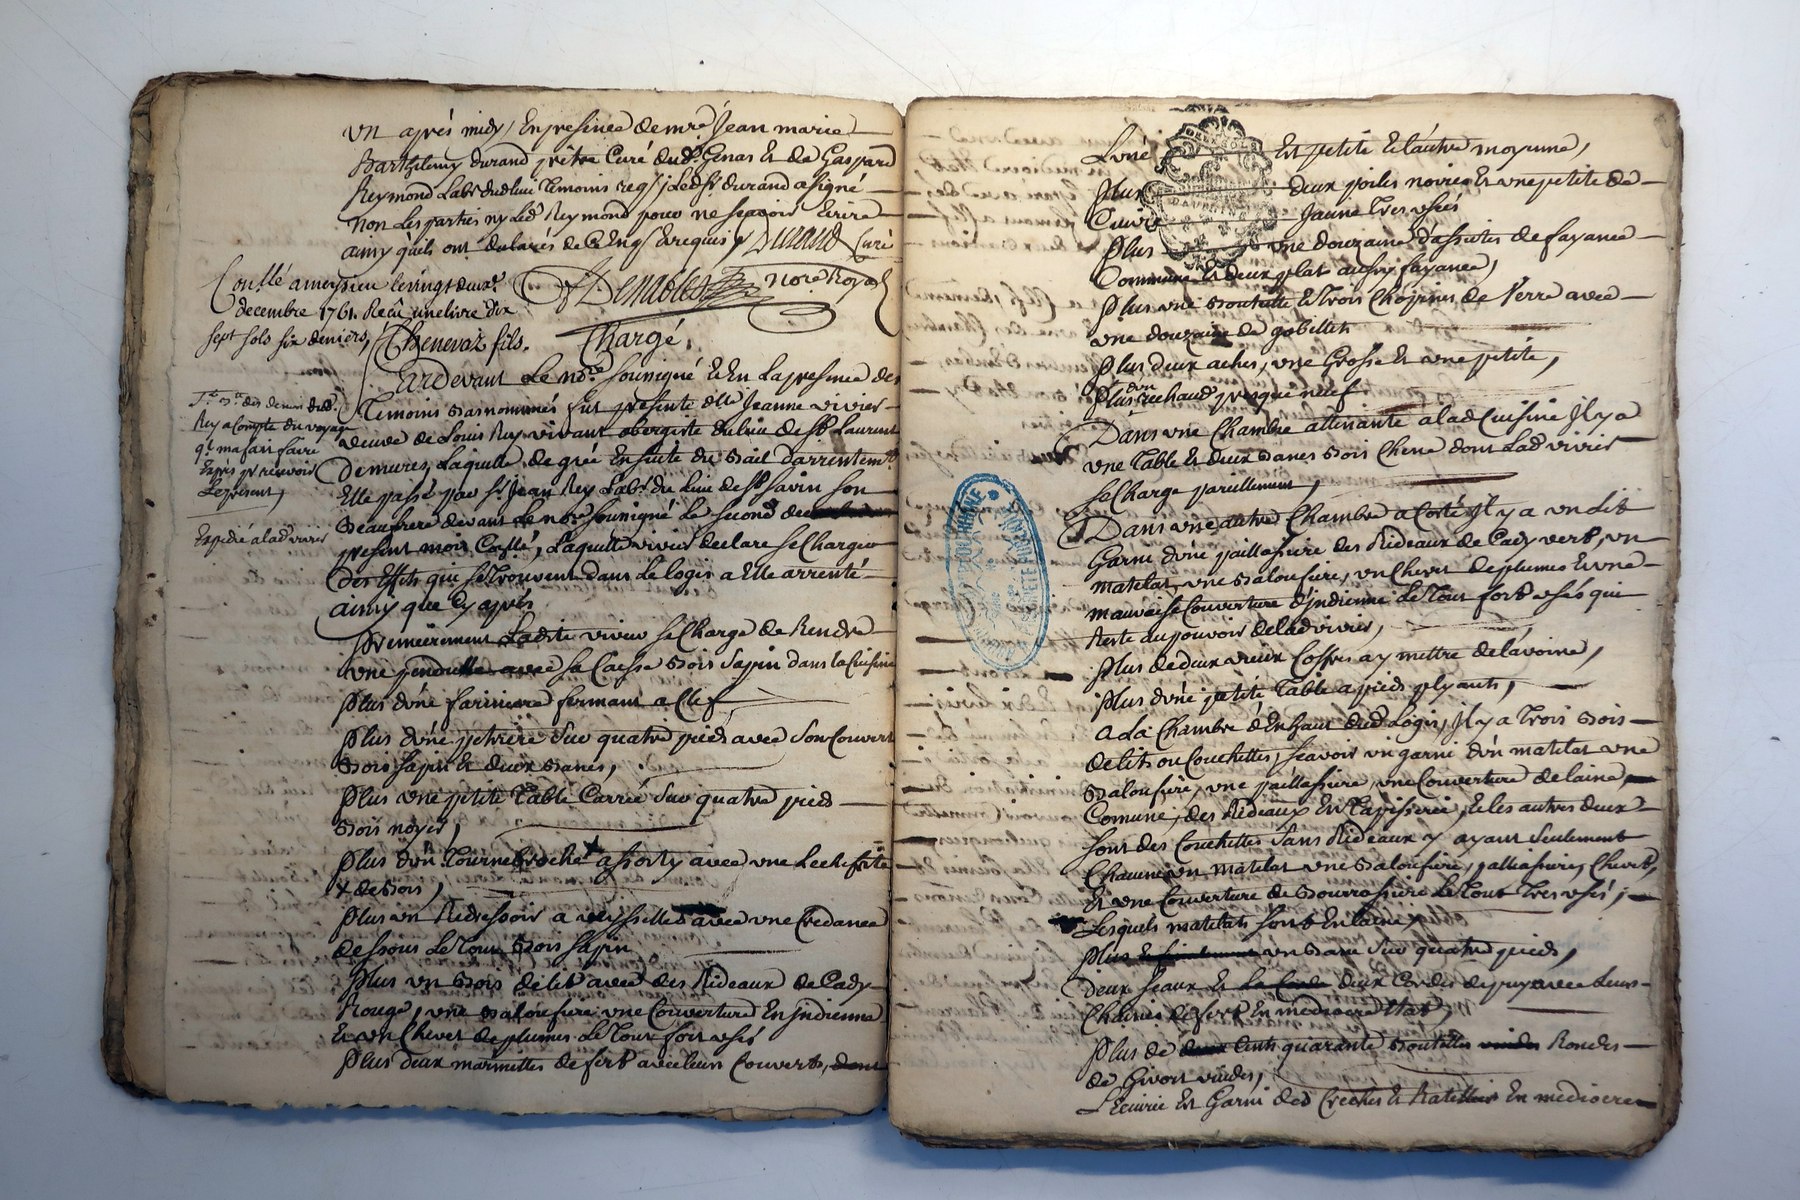 un après midy, En presence de mre Jean marie
Barthelemy durand prêtre Curé dud. Genas Et de Gaspard
Reymond Labr dudlieu temoins req. Led Sr durand a signé
non Les parties ny Led Reymond pour ne sçavoir Ecrire
ainsy qu'ils ont declarés de Ce Enq. Et requis Durand Curé
Denaoles nore Royal
Conllé a meyzieu le vingt deux
decembre 1761. Reçû une livre dix
sept sols six deniers, Chenevaz fils.
Chargé.
Pardevant Le nore Sousigné Et En La presence des
Temoins Bas nommés fut presente dlle Jeanne vivier
veuve de Louis Rey vivant obergiste du lieu de St. Laurent
De mures, Laquelle de gré En suite du Bail d'arrentemt
Elle passé par Sr. Jean Rey Labr. du lieu de St. Savin son
Beaufrere devant Le nore Sousigné Le Second du
present mois Conllé, Laquelle vivier declare se Charger
Des Effets qui se trouvent dans Le logis a Elle arrenté
ainsy que Cy après
des deniers dud.
Rey a Compte du voyage
q. m'a fait faire
Expédié a lad vivier
Premierement Ladite vivier se Charge de Rendre
une pendulle avec sa Caesse Bois Sapin dans la Cuisine
Plus d'une fariniere fermant a Clef
Plus d'une petriere Sur quatre pieds avec Son Couvert
Bois Sapin Et deux Bancs,
Plus une petite Table Carrée Sur quatre pieds
Bois noyer,
Plus d'un Tournebroche assorty avec une Lechefritte
x de Bois,
Plus un Redressoir a veysselle avec une Credance
dessous Le Tout Bois Sapin
Plus un Bois de lit avec des Rideaux de Cady
Rouge, une Baloufiere une Couverture En jndienne
Et un Chevet de plumes Le Tout fort usés
Plus deux marmittes de fert avec leurs Couverts, dont
L'une Est petite Et l'autre moyenne,
Plus deux poiles noires Et une petite de
Cuivre Jaune Tres usés
Plus une douzaine d'assietes de fayance
Commune Et deux plat aussy fayance,
Plus une Bouteille Et Trois Chopines de verre avec
une douzaine de gobellets
Plus deux aches, une Grosse Et une petite,
Plus d'un rechaud presque neuf
Dans une Chambre attenante a lad Cuisine Jl y a
une Table Et deux Bancs Bois Chene dont Lad vivier
se Charge pareillement,
Dans une autre Chambre a Coté Jl y a un Lit
Garni d'une paillassiere des Rideaux de Cady verd, un
matelat, une Baloufiere, un Chevet de plumes Et une
mauvaise Couverture d'jndienne Le Tout fort usés qui
Reste au pouvoir de lad vivier,
Plus de deux vieux Coffres a y mettre de l'avoine,
Plus d'une petite Table a pieds plyants,
a La Chambre d'Enhaut dud Logis, Jl y a Trois Bois
de lits ou Couchettes, sçavoir un garni d'un matelat une
Baloufiere, une paillassiere, une Couverture de laine
Comune, des Rideaux En Tapisserie, Et les autres deux
sont des Couchettes Sans Rideaux y ayant Seulement
Chacune un matelat une Baloufiere, paillassiere, Chevet,
Et une Couverture de Bourrassiere Le Tout Tres usés,
Lesquels matelats sont En laine,
Plus un Banc Sur quatre pieds,
Deux Seaux Et deux Cordes de puy avec Leurs
Chaines de fert En mediocre Etat,
Plus de Cents quarante Bouteilles Rondes
de Givort vuides,
L'Ecurie Est Garni des Creches Et Ratelliers En mediocre